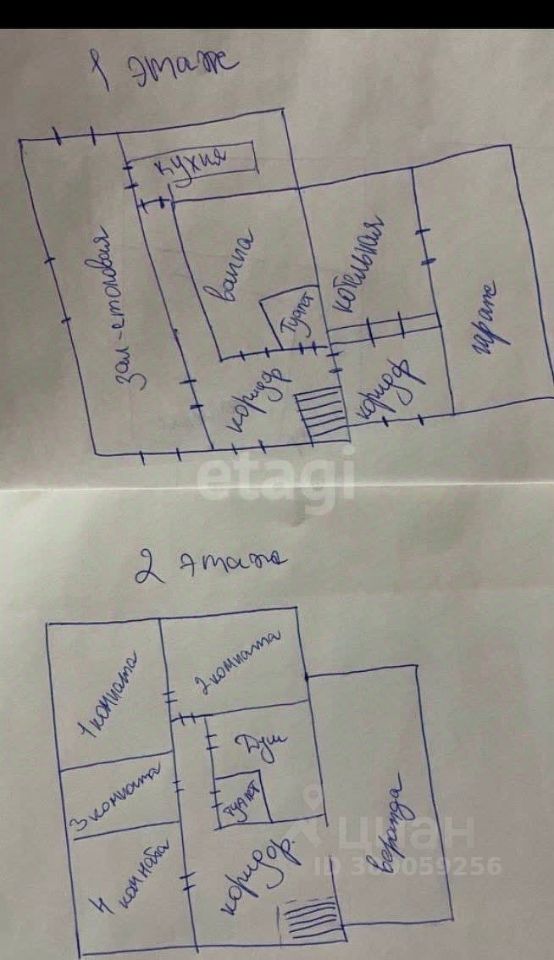 1 этаж
кухня
зал-столовая
ванна
туалет
котельная
гараж
коридор
коридор
etagi
2 этажа
1 комната
2 комната
3 комната
4 комната
Душ
туалет
коридор.
веранда
циан
ID 300059256